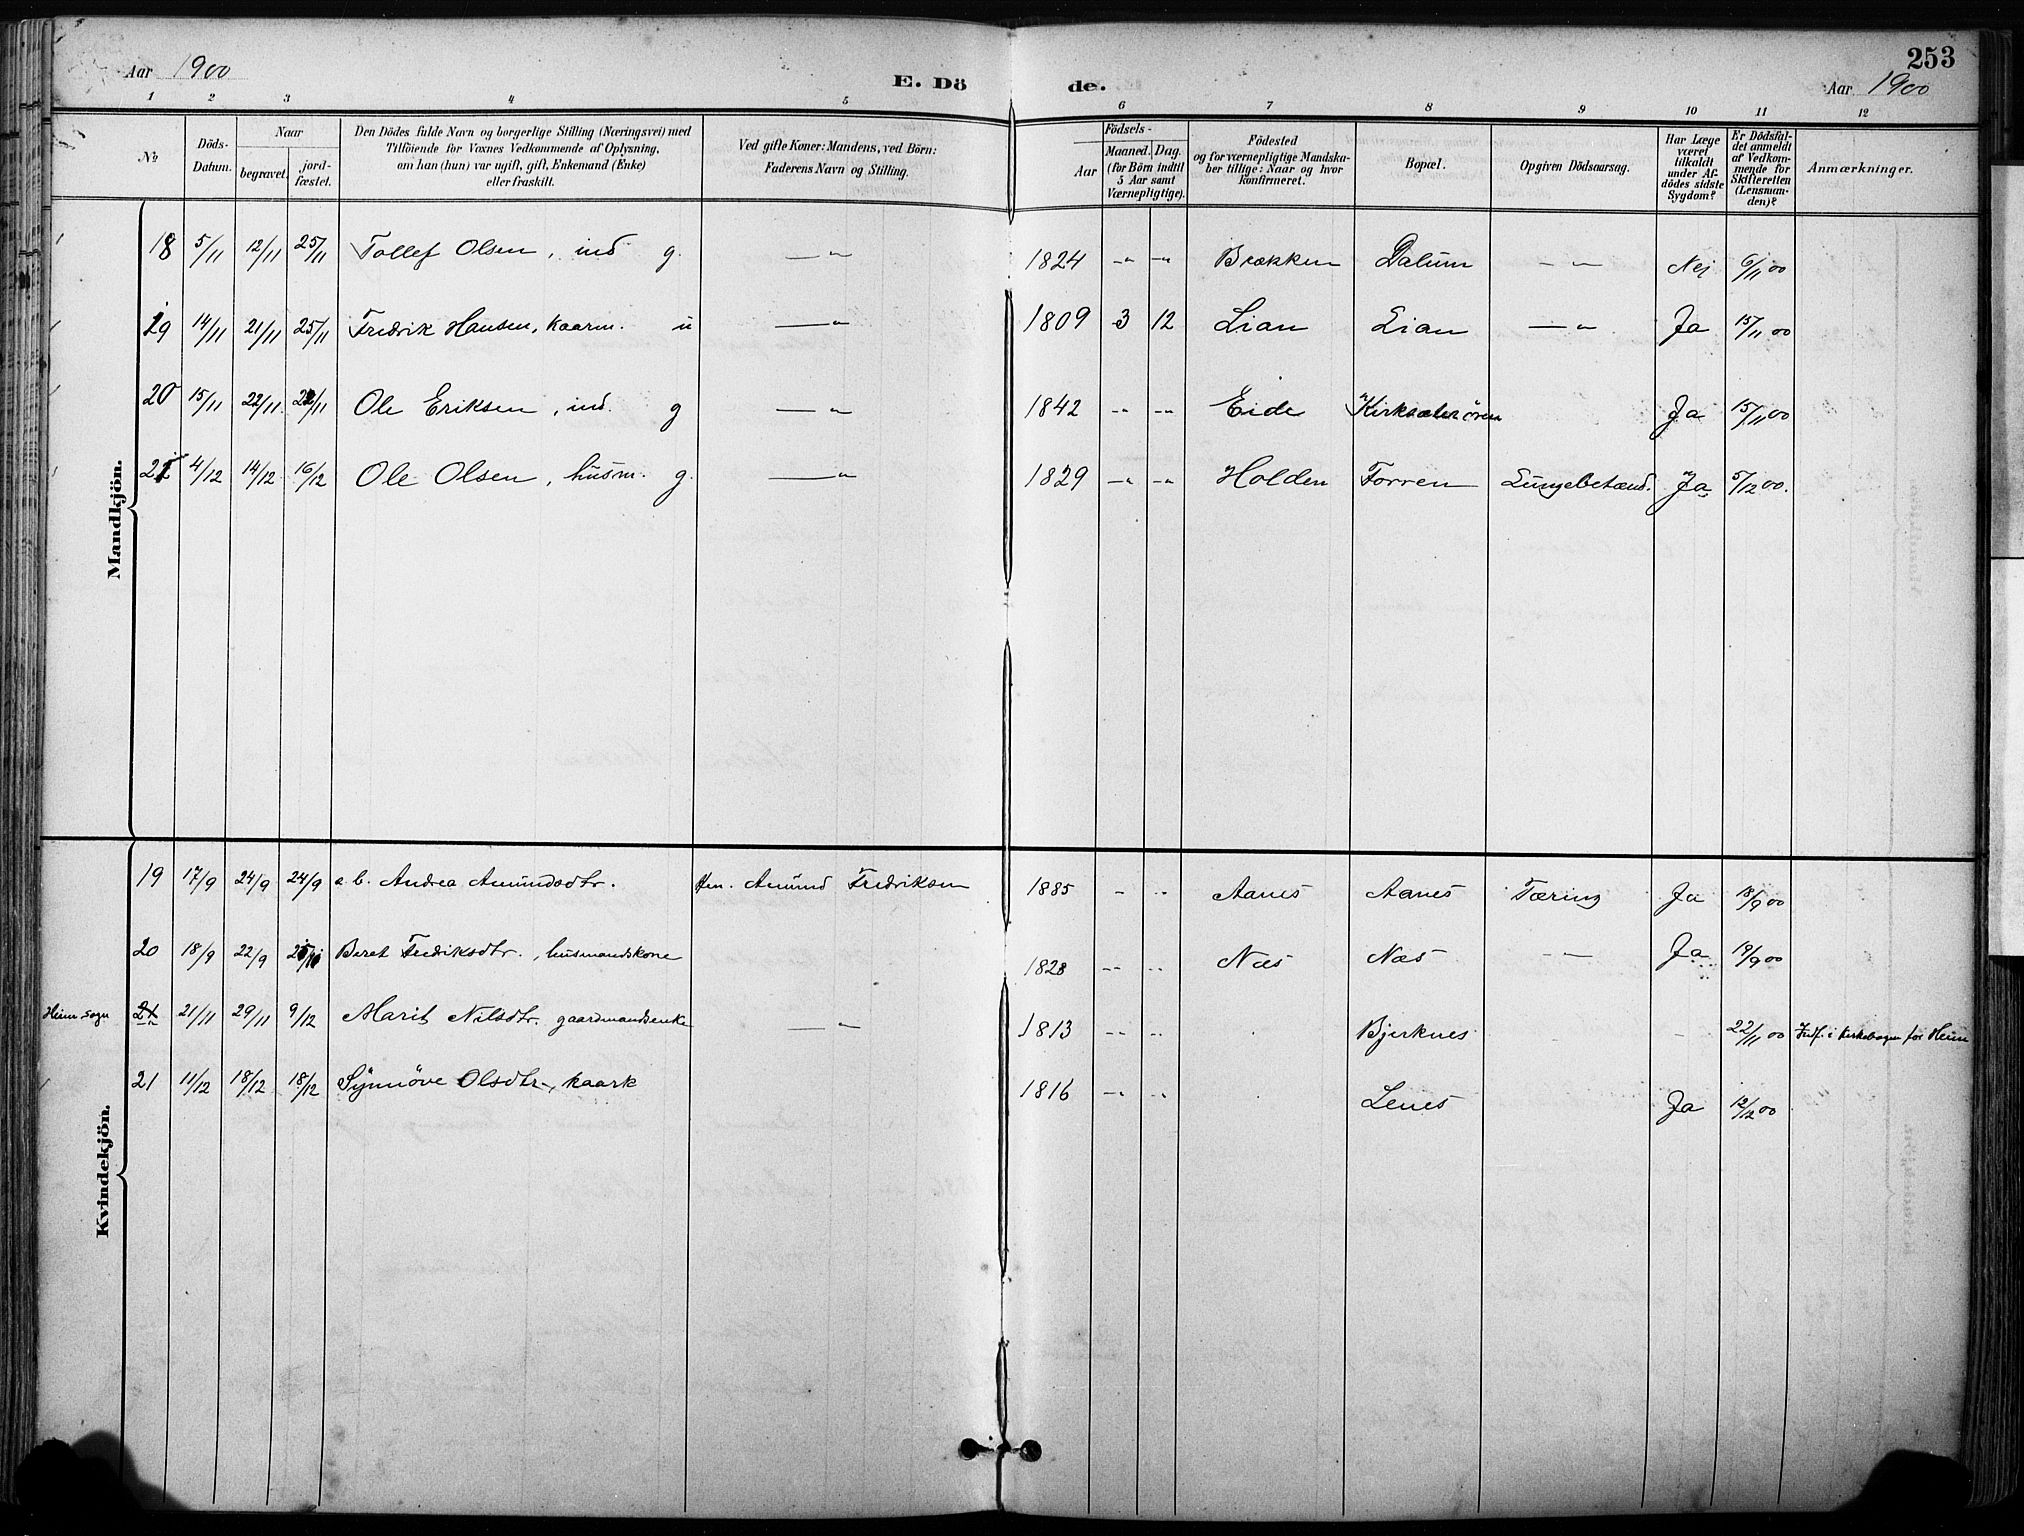 253
Aar 1900 E. Dö de. Aar 1900
1 2 3 4 5 6 7 8 9 10 11 12
No
Döds-
Datum.
Naar
begravet.
jord-
fæstet.
Den Dödes fulde Navn og borgerlige Stilling (Næringsvei) med
Tilföiende for Voxnes Vedkommende af Oplysning,
om han (hun) var ugift, gift, Enkemand (Enke)
eller fraskilt.
Ved gifte Koner: Mandens, ved Börn:
Faderens Navn og Stilling.
Födsels-
Aar
Maaned. Dag.
(for Börn indtil
5 Aar samt
Værnepligtige).
Födested
og for værnepligtige Mandska-
ber tillige: Naar og hvor
konfirmeret.
Bopæl.
Opgiven Dödsaarsag.
Har Læge
været
tilkaldt
under Af-
dödes sidste
Sygdom?
Er Dödsfal-
det anmeldt
af Vedkom-
mende for
Skifteretten
(Lensman-
den)?
Anmærkninger.
Mandkjön.
18 5/11 12/11 25/11 Tollef Olsen, ind g. —"— 1824 -"- -"- Brækken Dalum —"— Nej 6/11 00
19 14/11 21/11 25/11 Fredrik Hansen, kaarm. u —"— 1809 3 12 Lian Lian —"— Ja 15/11 00
20 15/11 22/11 /11 Ole Eriksen, ind. g —"— 1842 -"- -"- Eide Kirksæterören Ja 15/11 00
21 4/12 14/12 16/12 Ole Olsen, husm. g. —"— 1829 -"- -"- Holden Forren Lungebetænd. Ja 5/12 00.
Kvindekjön.
19 17/9 24/9 24/9 e.b. Andrea Amundsdtr. Amund Fredriksen 1885 -"- -"- Aanes Aanes Tæring Ja 18/9 00
20 18/9 22/9 Beret Fredriksdtr., husmandskone 1828 -"- -"- Næs Næs —"— Ja 19/9 00
Heim sogn 21/11 29/11 9/12 Marit Nilsdtr. gaardmandsenke —"— 1813 -"- -"- Bjerknes - 22/11 00 Indf. i Kirkebogen for Heim
21 11/12 18/12 18/12 Synnöve Olsdtr., kaark 1816 -"- -"- Lenes Ja 12/12 00